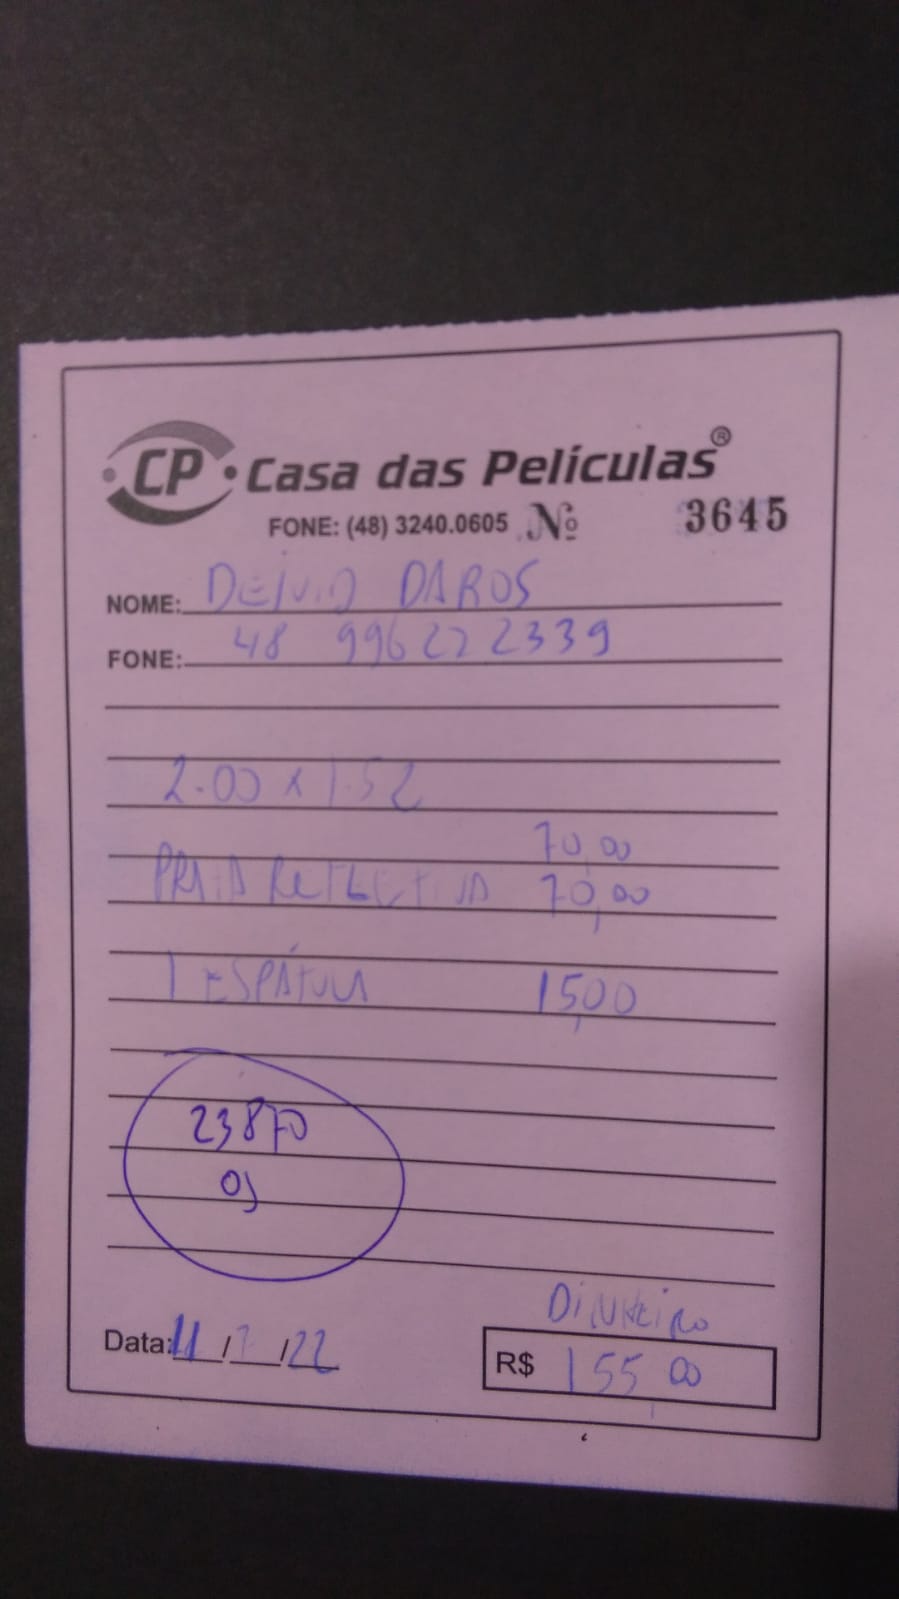 CP Casa das Películas®
FONE: (48) 3240.0605 Nº 3645
NOME: DEIVID DAROS
FONE: 48 996222339
2.00 x 1.52
70,00
PRATA REFLECTIVA 70,00
1 ESPÁTULA 15,00
23870
Data: 11/7/22
DINHEIRO
R$ 155,00